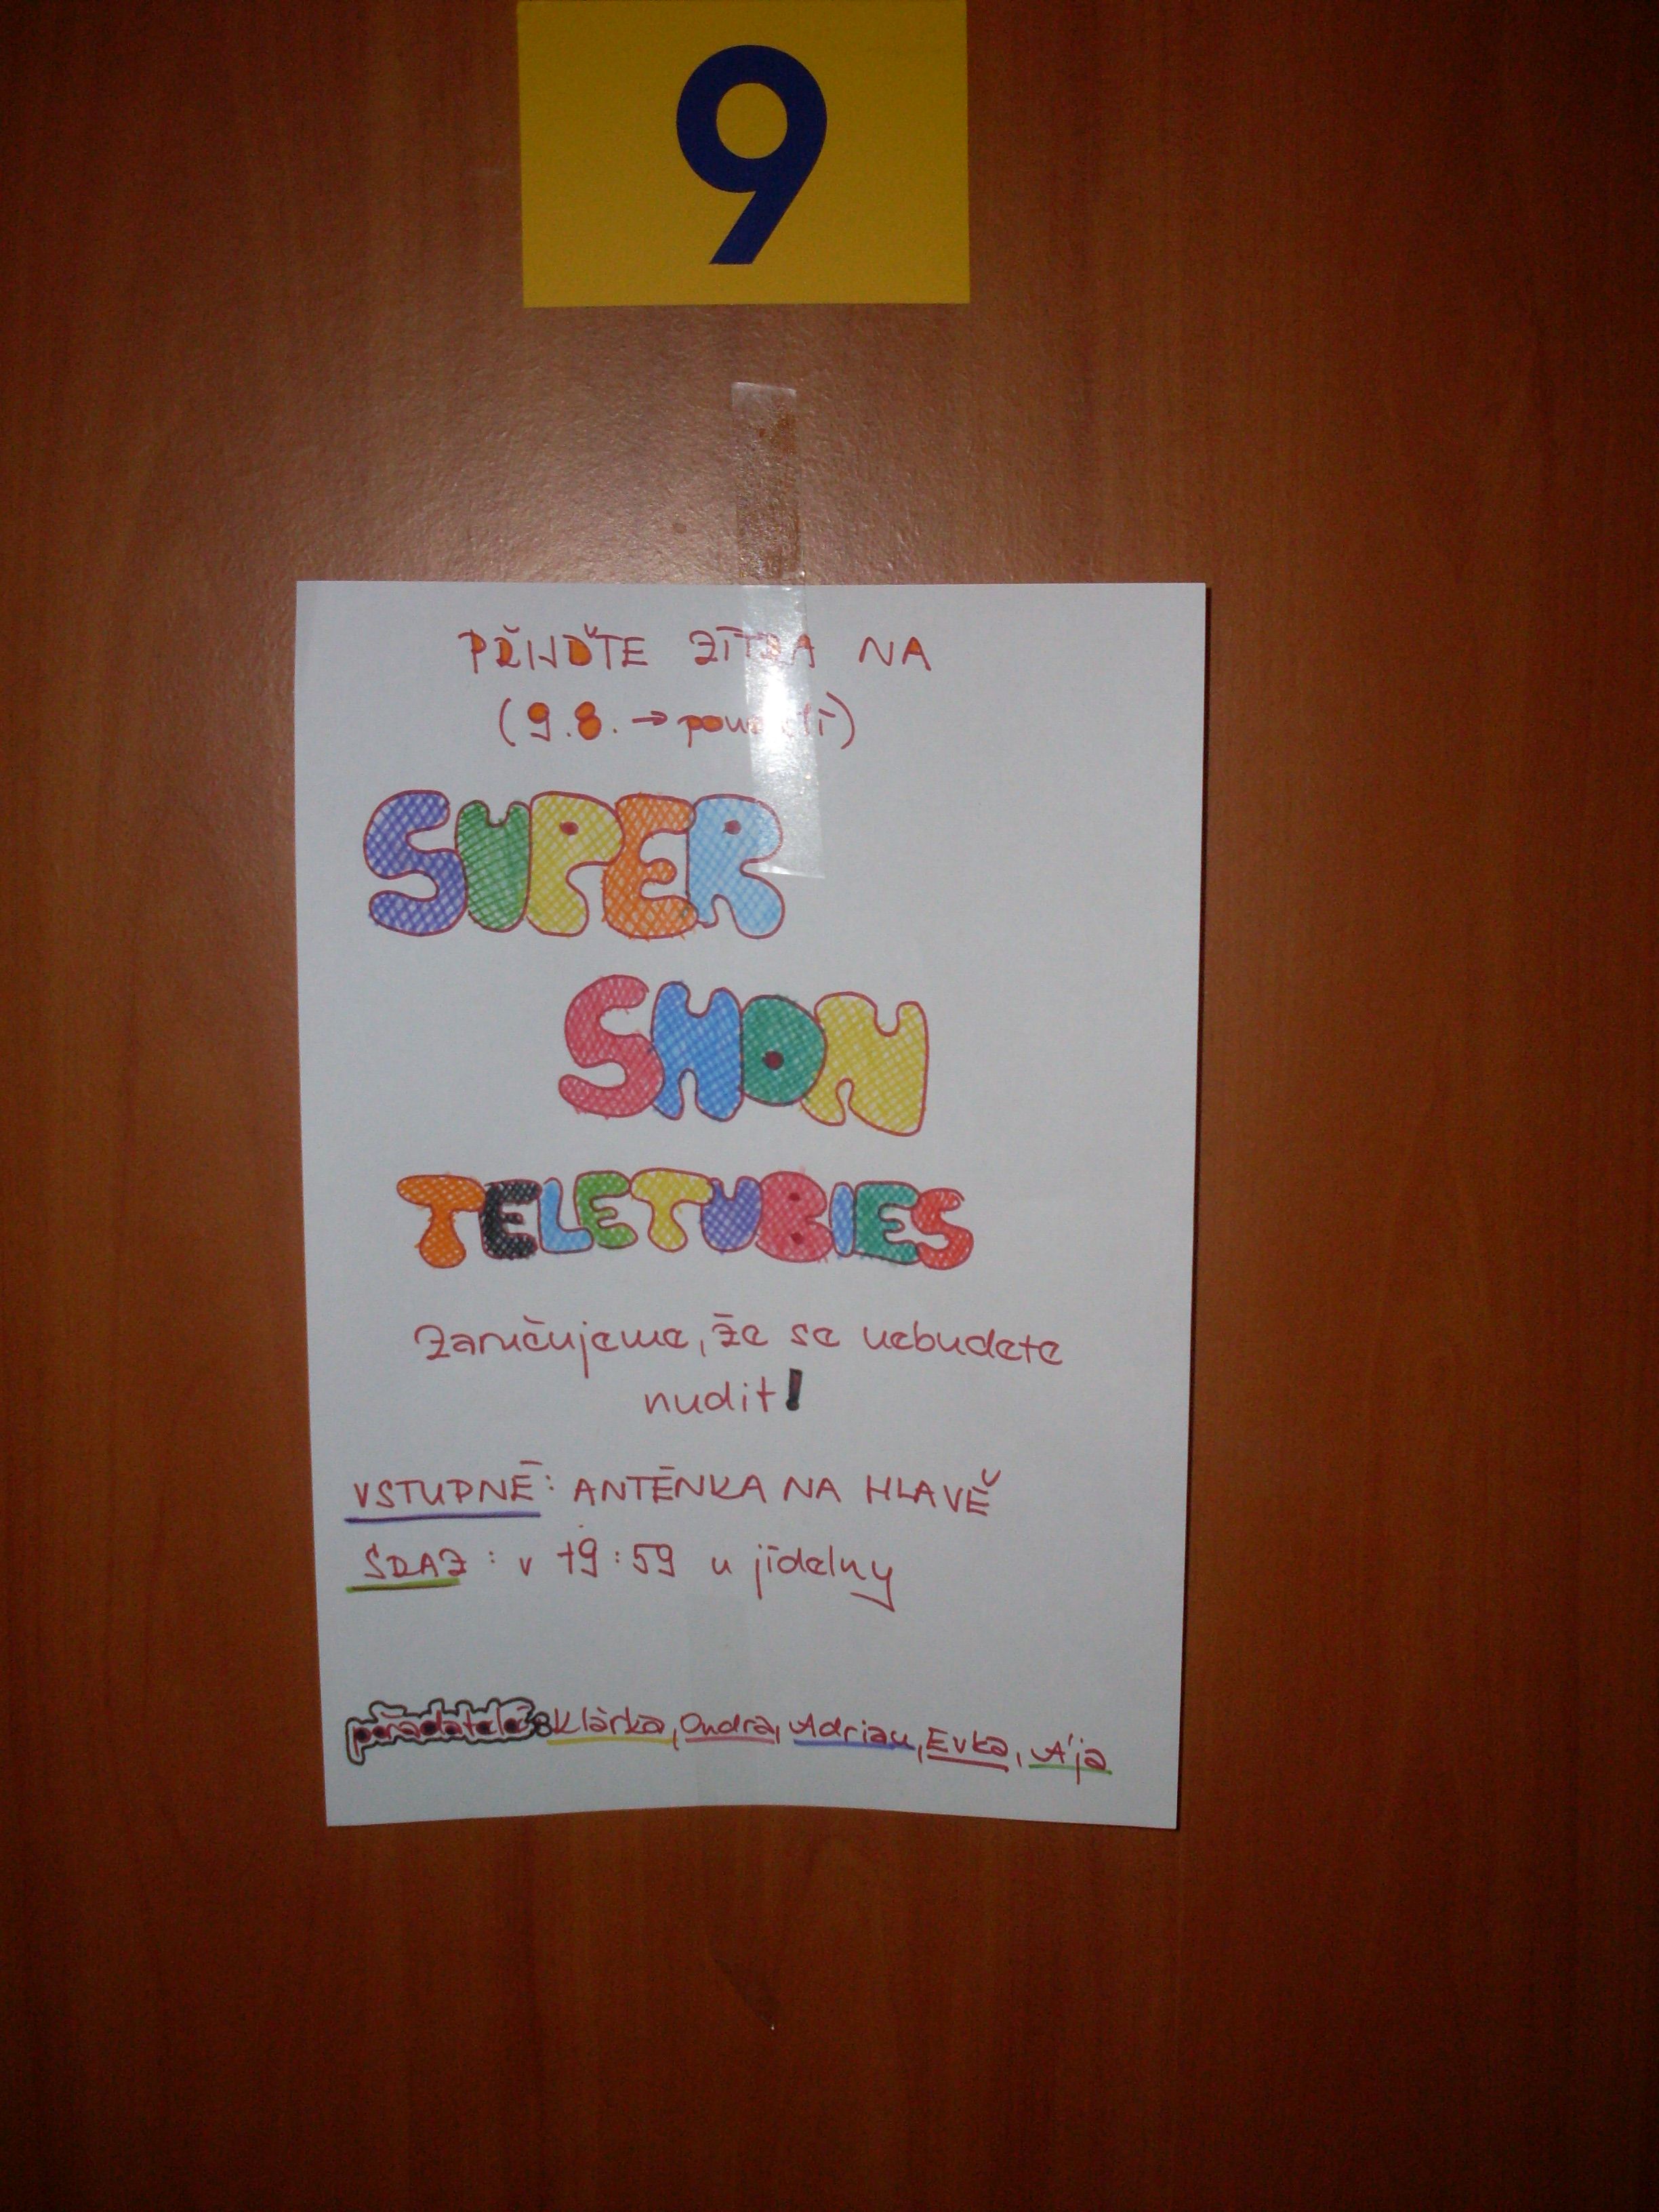 9
PŘIJĎTE ZÍTRA NA
(9.8. → pondělí)
SUPER
SHOW
TELETUBIES
Zaručujeme, že se nebudete
nudit!
VSTUPNÉ: ANTÉNKA NA HLAVĚ
SRAZ: v 19:59 u jídelny
pořadatelé: Klárka, Ondra, Adrian, Evka, Ája